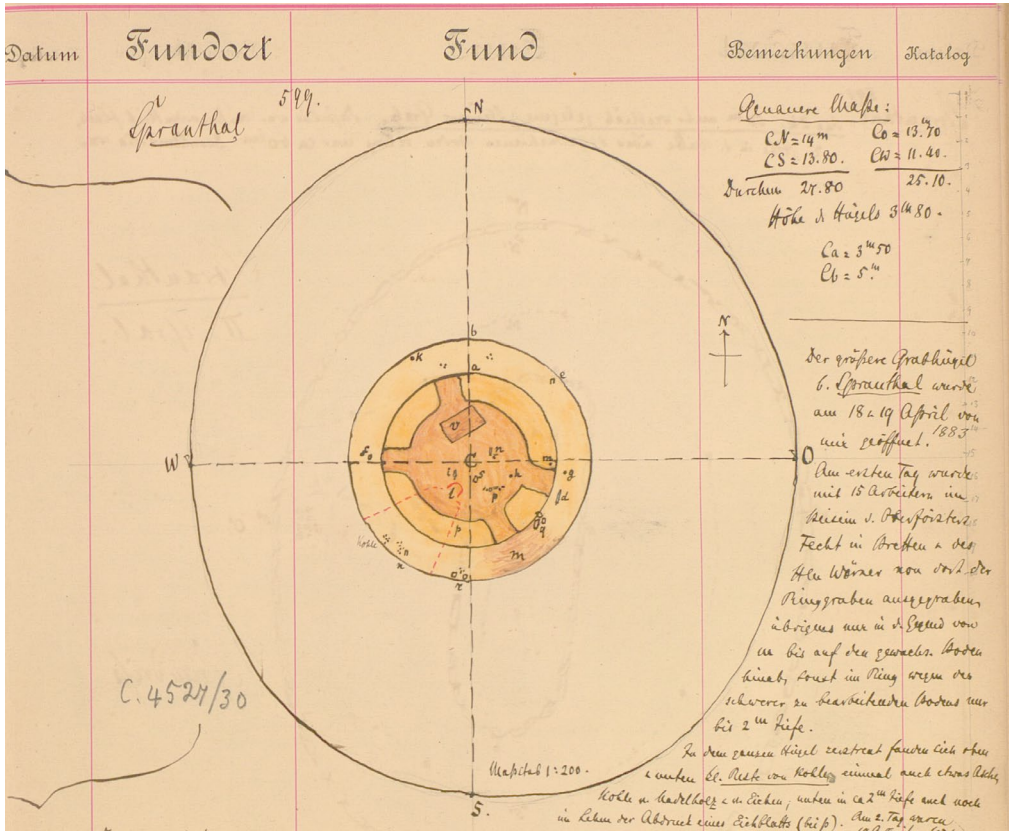 Datum Fundort Fund Bemerkungen Katalog
Spranthal
599.
N
Genauere Maße:
CN = 14 m
CS = 13.80.
Co = 13.70
CW = 11.40.
Durchm 27.80
25.10.
Höhe d. Hügels 3 m 80.
Ca = 3 m 50
Cb = 5 m
N
b
k
a
e
v
W
C
O
f
n
m
g
h
i
l
p
d
q
p
Kohle
m
n
r
Der größere Grabhügel
b. Spranthal wurde
am 18 u 19 April von
mir geöffnet. 1883
Am ersten Tag wurde
mit 15 Arbeitern im
Beisein d. Oberförsters
Fecht in Bretten u des
Hln Wörner von dort der
Ringgraben ausgegraben,
übrigens nur in d. Gegend von
m bis auf den gewachs. Boden
hinab, sonst im Ring wegen des
schwerer zu bearbeitenden Bodens nur
bis 2 m Tiefe.
In dem ganzen Hügel zerstreut fanden sich oben
u unten kl. Reste von Kohle, einmal auch etwas Asche,
Kohle v. Nadelholz u. v. Eichen; unten in ca 2 m Tiefe auch noch
im Lehm der Abdruck eines Eichblatts (bei p). Am 2. Tag waren
C. 4527/30
Maßstab 1:200.
S.